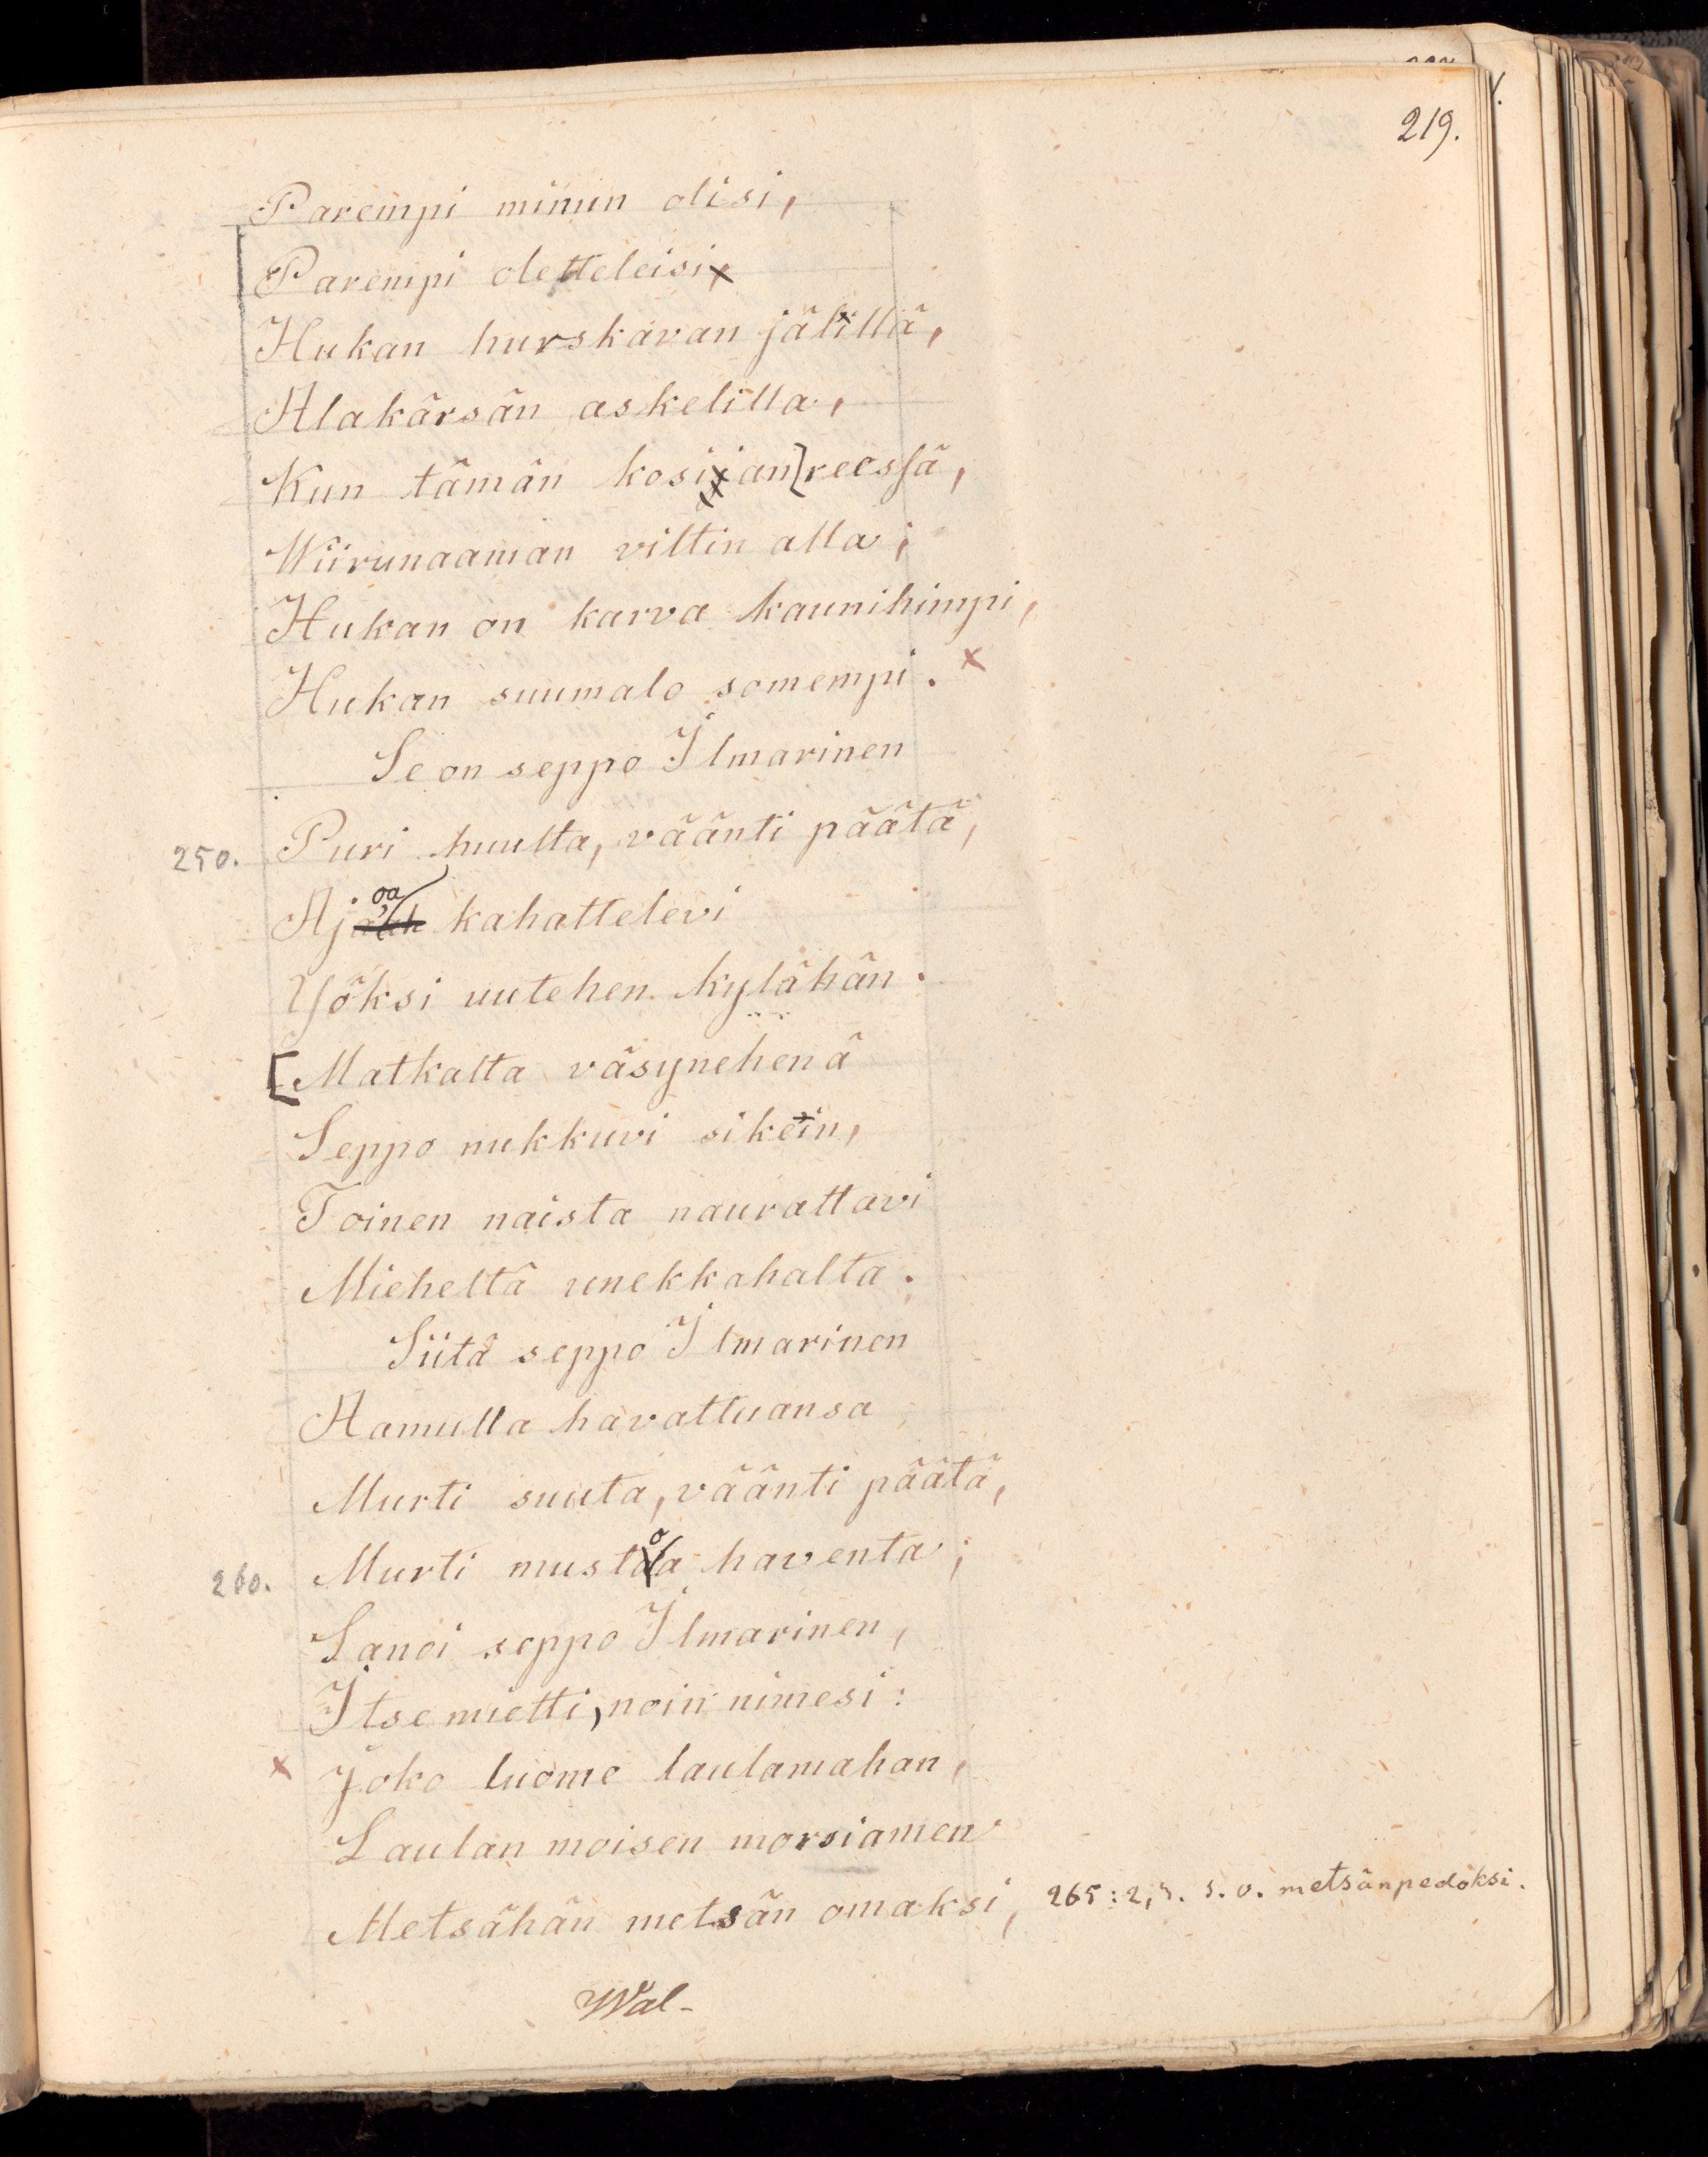 219.
Parempi minun olisi,
Parempi oletteleisi,
Hukan hurskavan jälillä,
Alakärsän askelilla,
Kun tämän kosijan] reessä,
Wiirunaaman viltin alla;
Hukan on karva kaunihimpi,
Hukan suumalo somempi. x
Se on seppo Ilmarinen
250. Puri huulta, väänti päätä,
Ajoa kahattelevi
Yöksi uutehen kylähän.
[Matkalta väsynehenä
Seppo nukkuvi sikein,
Toinen naista naurattavi
Mieheltä unekkahalta.
Siitä seppo Ilmarinen
Aamulla havattuansa
Murti suuta, väänti päätä,
260. Murti mustoa haventa;
Sanoi seppo Ilmarinen,
Itse mietti, noin nimesi:
x Joko luome laulamahan,
Laulan moisen morsiamen
Metsähän metsän omaksi, 265: 2,3. s. o. metsänpedoksi.
Wal-